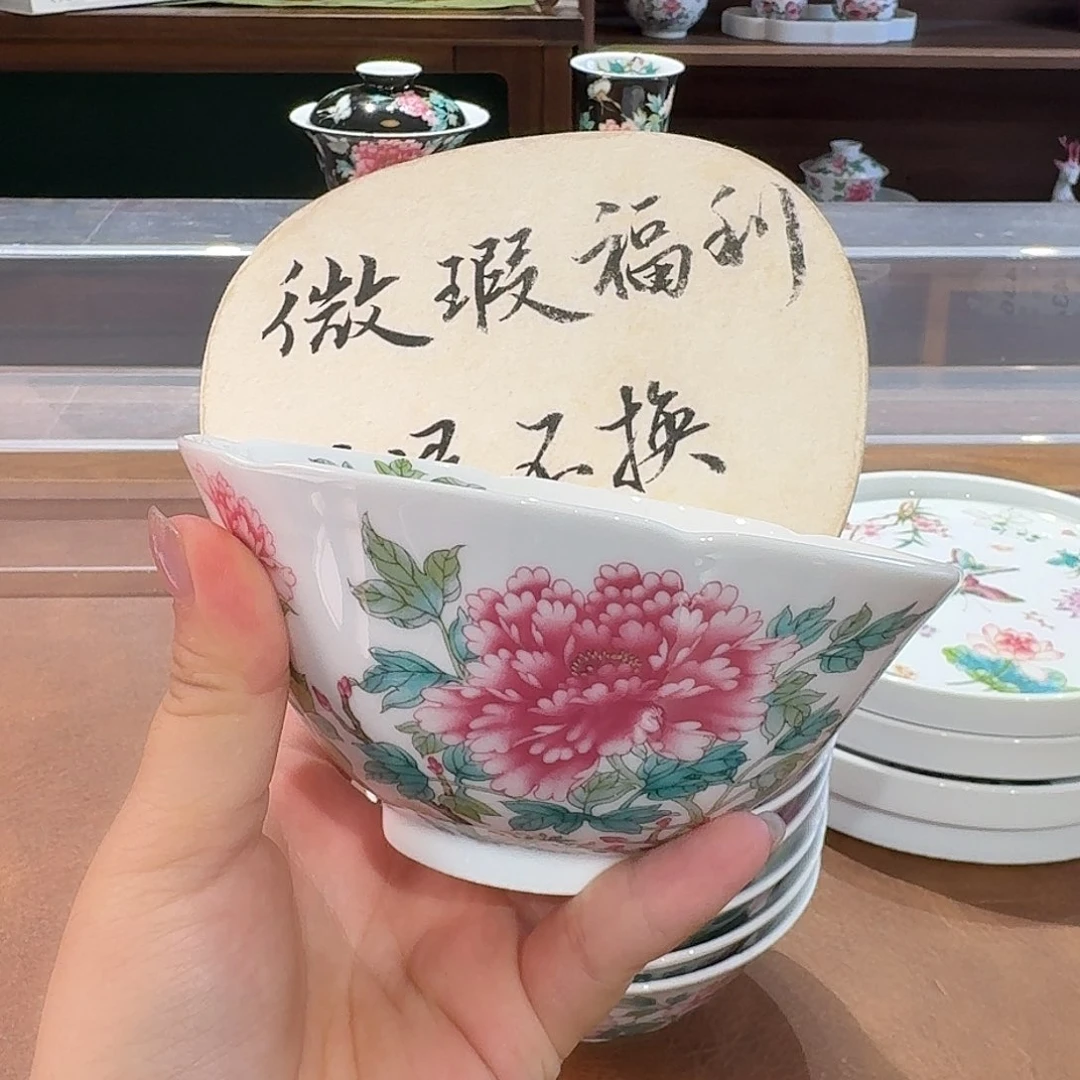 微瑕福利
不换